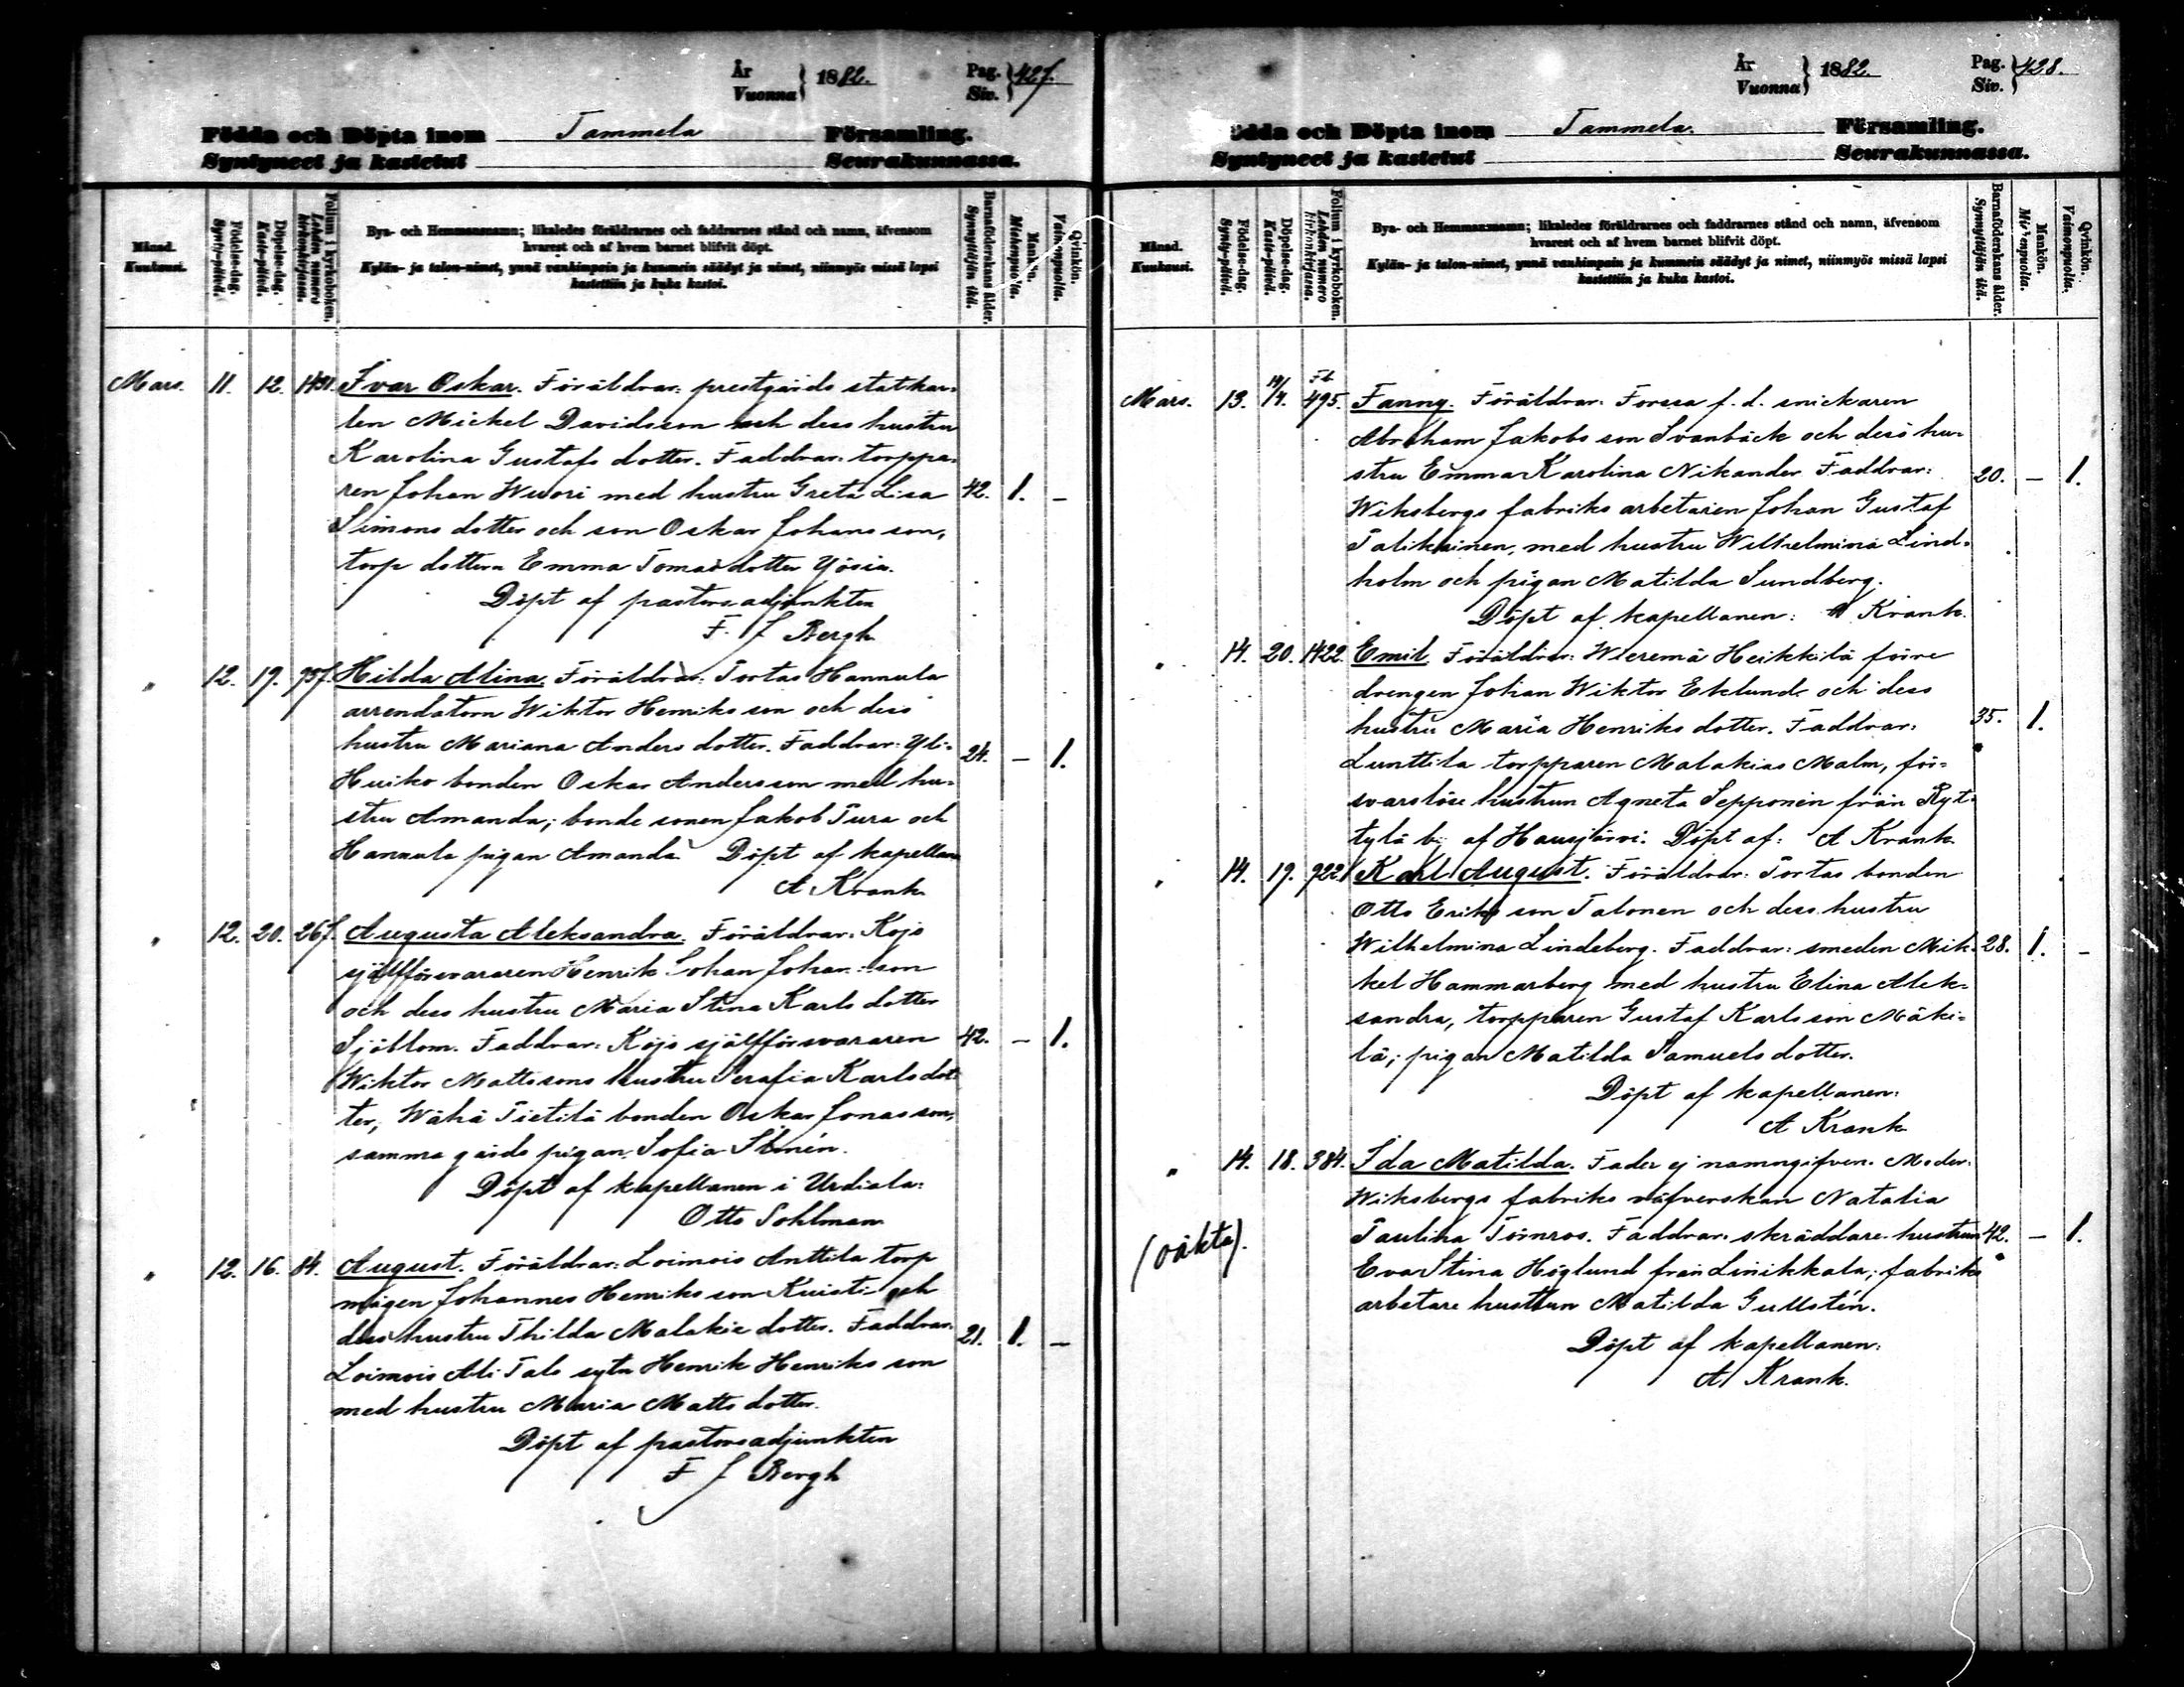 År
Vuonna } 1882. Pag.
Siv. } 427.
Födda och Döpta inom Tammela Församling.
Syntyneet ja kastetut Seurakunnassa.
Månad. Kuukausi.
Födelse-dag. Synty-päivä.
Döpelse-dag. Kaste-päivä.
Folium i kyrkoboken. Lehden numero kirkonkirjassa.
Bya- och Hemmansnamn; likaledes föräldrarnes och faddrarnes stånd och namn, äfvensom
hvarest och af hvem barnet blifvit döpt.
Kylän- ja talon-nimet, ynnä vanhimpain ja kummein säädyt ja nimet, niinmyös missä lapsi
kastettiin ja kuka kastoi.
Barnaföderskans ålder. Synnyttäjän ikä.
Mankön. Miehenpuolta.
Qvinkön. Vaimonpuolta.
Mars. 11. 12. 1431. Ivar Oskar. Föräldrar: prestgårds statkar-
len Mickel Davidsson och dess hustru
Karolina Gustafs dotter. Faddrar: torppa-
ren Johan Wuori med hustru Greta Lisa 42. 1. –
Simons dotter och son Oskar Johans son,
torp dottern Emma Tomas dotter Yösia.
Döpt af pastors adjunkten
F. J Bergh
" 12. 19. 757. Hilda Alina. Föräldrar: Tortas Hannula
arrendatorn Wiktor Henriks son och dess
hustru Mariana Anders dotter. Faddrar: Yli- 24. – 1.
Huiko bonden Oskar Andersson med hu-
stru Amanda; bonde sonen Jakob Tura och
Hannula pigan Amanda. Döpt af kapellan
A Krank
" 12. 20. 267. Augusta Aleksandra. Föräldrar: Kojo
sjelfförsvararen Henrik Johan Johansson
och dess hustru Maria Stina Karls dotter
Sjöblom. Faddrar: Kojo sjelfförsvararen 42. – 1.
Wiktor Mattssons hustru Serafia Karls dot-
ter, Wähä Tietilä bonden Oskar Jonas son,
samma gårds pigan Sofia Stenén.
Döpt af kapellanen i Urdiala:
Otto Sohlman
" 12. 16. 84. August. Föräldrar: Loimois Anttila torp
mågen Johannes Henriks son Kuisti och
dess hustru Thilda Malakie dotter. Faddrar: 21. 1. –
Loimois Ali Talo sytn Henrik Henriks son
med hustru Maria Matts dotter.
Döpt af pastorsadjunkten
F J Bergh
År
Vuonna } 1882. Pag.
Siv. } 428.
Födda och Döpta inom Tammela. Församling.
Syntyneet ja kastetut Seurakunnassa.
Månad. Kuukausi.
Födelse-dag. Synty-päivä.
Döpelse-dag. Kaste-päivä.
Folium i kyrkoboken. Lehden numero kirkonkirjassa.
Bya- och Hemmansnamn; likaledes föräldrarnes och faddrarnes stånd och namn, äfvensom
hvarest och af hvem barnet blifvit döpt.
Kylän- ja talon-nimet, ynnä vanhimpain ja kummein säädyt ja nimet, niinmyös missä lapsi
kastettiin ja kuka kastoi.
Barnaföderskans ålder. Synnyttäjän ikä.
Mankön. Miehenpuolta.
Qvinkön. Vaimonpuolta.
Mars. 13. 14/4. Fb 495. Fanny. Föräldrar: Forssa f.d. snickaren
Abraham Jakobs son Svanbäck och dess hu-
stru Emma Karolina Nikander. Faddrar: 20. – 1.
Wiksbergs fabriks arbetaren Johan Gustaf
Talikainen, med hustru Wilhelmina Lind-
holm och pigan Matilda Sundberg.
Döpt af kapellanen: A Krank.
" 14. 20. 1422. Emil. Föräldrar: Wieremä Heikkilä förre
drengen Johan Wiktor Eklund och dess
hustru Maria Henriks dotter. Faddrar: 35. 1.
Lunttila torpparen Malakias Malm, för-
svarslöse hustrun Agneta Sepponen från Ryt-
tylä by af Hausjärvi. Döpt af: A Krank.
" 14. 19. 722. Karl August. Föräldrar: Tortas bonden
Otto Eriks son Talonen och dess hustru
Wilhelmina Lindeberg. Faddrar: smeden Mik- 28. 1. –
kel Hammarberg med hustru Elina Alek-
sandra, torpparen Gustaf Karls son Mäki-
lä; pigan Matilda Samuels dotter.
Döpt af kapellanen:
A Krank
" 14. 18. 384. Ida Matilda. Fader ej namngifven. Moder:
Wiksbergs fabriks väfverskan Natalia
(oäkta). Paulina Törnros. Faddrar: skräddare hustrun 42. – 1.
Eva Stina Höglund från Linikkala; fabriks
arbetare hustrun Matilda Gullstén.
Döpt af kapellanen:
A Krank.